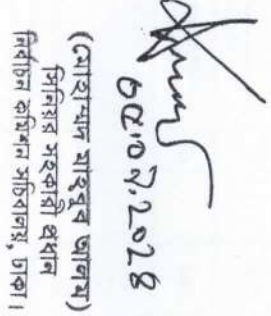 ০৫.০৭.২০২৪
(মোহাম্মদ মাহবুব আলম)
সিনিয়র সহকারী প্রধান
নির্বাচন কমিশন সচিবালয়, ঢাকা।